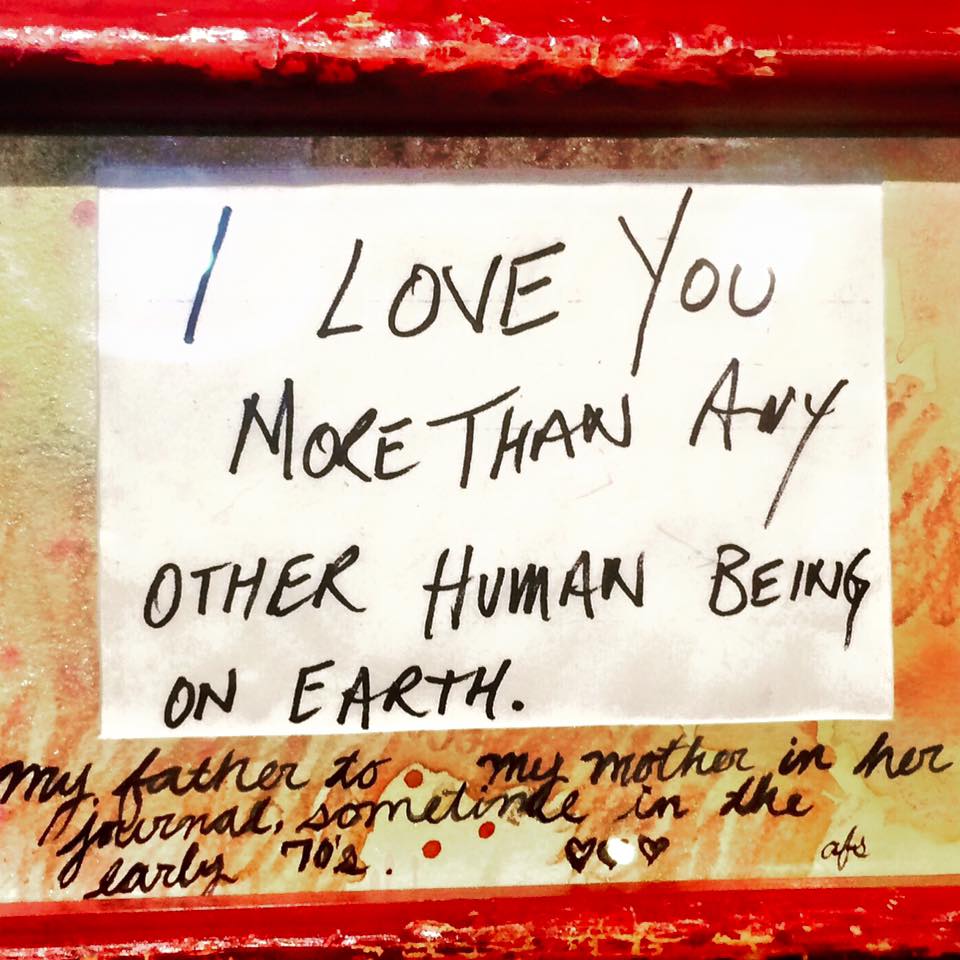 I LOVE YOU
MORE THAN ANY
OTHER HUMAN BEING
ON EARTH.
my father to my mother in her
journal, sometime in the
early 70's.
afs